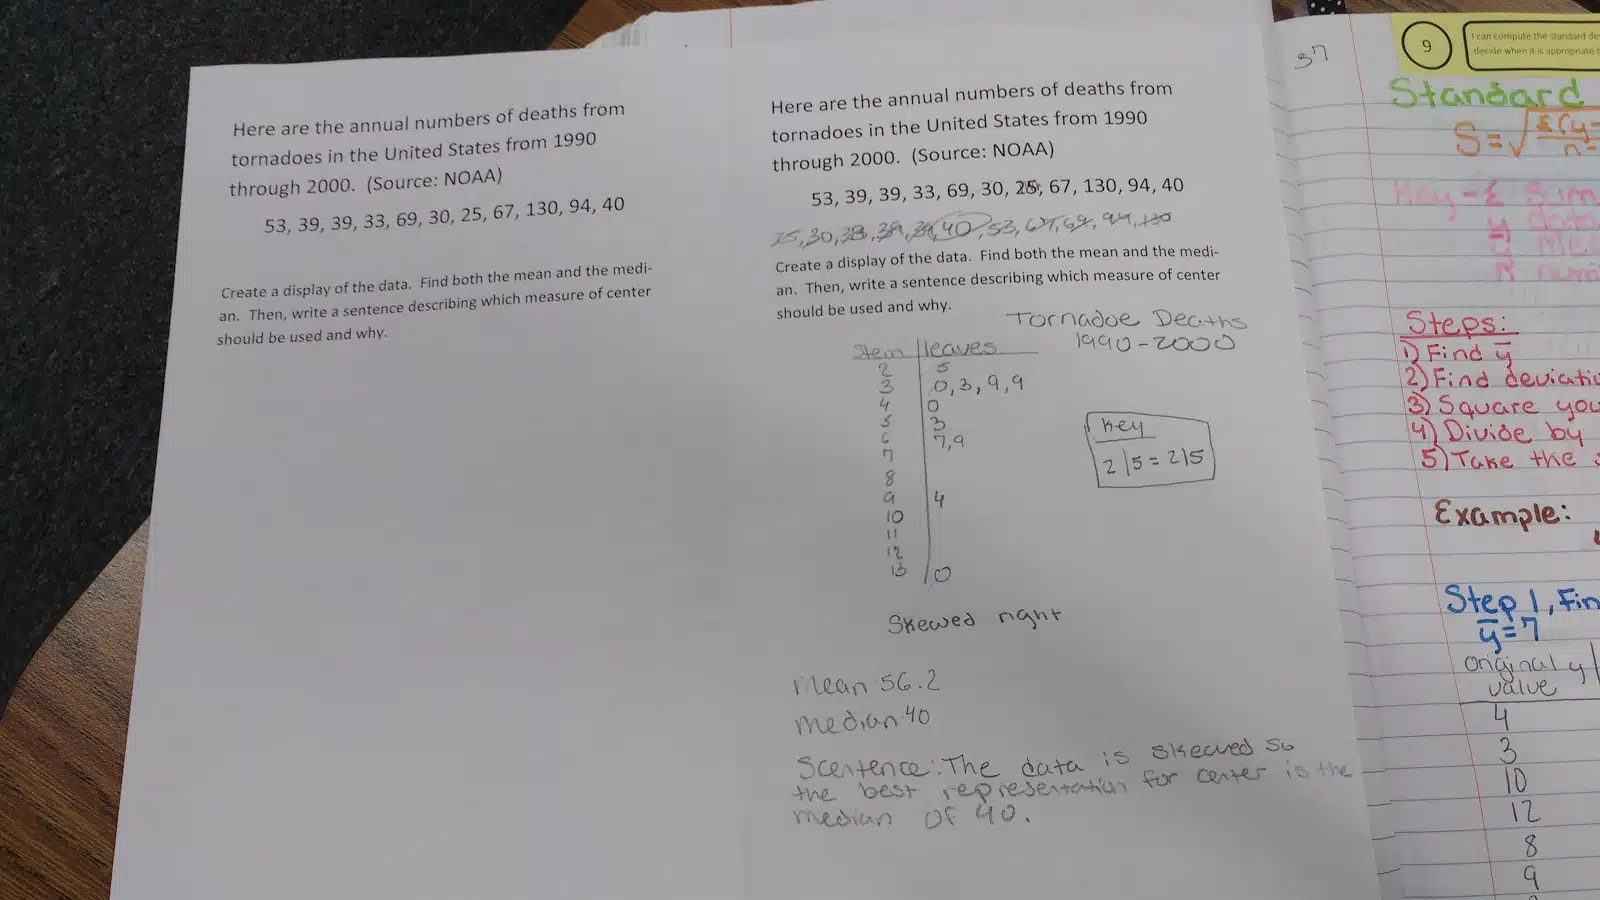 Here are the annual numbers of deaths from
tornadoes in the United States from 1990
through 2000. (Source: NOAA)
53, 39, 39, 33, 69, 30, 25, 67, 130, 94, 40
Create a display of the data. Find both the mean and the medi-
an. Then, write a sentence describing which measure of center
should be used and why.
Here are the annual numbers of deaths from
tornadoes in the United States from 1990
through 2000. (Source: NOAA)
53, 39, 39, 33, 69, 30, 25, 67, 130, 94, 40
25, 30, 33, 39, 39, 40, 53, 67, 69, 94, 130
Create a display of the data. Find both the mean and the medi-
an. Then, write a sentence describing which measure of center
should be used and why.
Tornadoe Deaths
1990-2000
Stem | leaves
2 | 5
3 | 0, 3, 9, 9
4 | 0
5 | 3
6 | 7, 9
7
8
9 | 4
10
11
12
13 | 0
Key
2|5 = 215
Skewed right
Mean 56.2
median 40
Scentence: The data is skewed so
the best representation for center is the
median of 40.
37
9
I can compute the standard
decide when it is appropriate
Standard
S=√Σ(y-
n-
Key - Σ Sum
data
n
Steps:
1) Find ȳ
2) Find
3) Square you
4) Divide by
5) Take the
Example:
Step 1, Fin
ȳ=7
original y
value
4
3
10
12
8
9